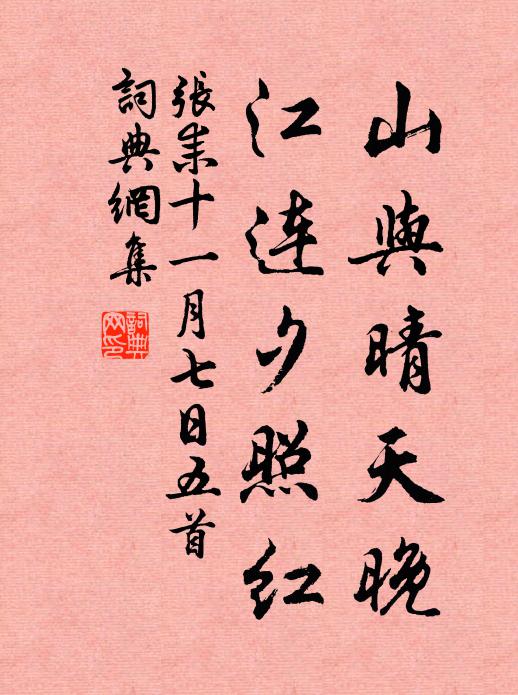 山與晴天晚
江連夕照紅
張耒十一月七日五首
詞典網集
詞典
网印